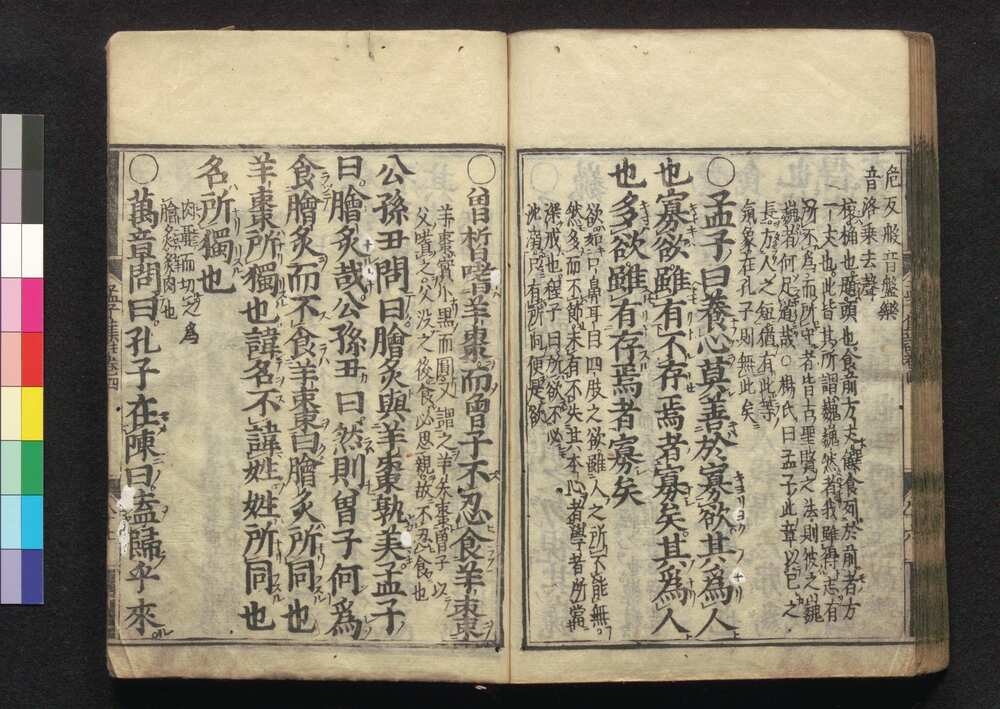 危反般音盤樂
音洛乗去聲
榱桷也題頭也食前方丈饌食列於前者方
一丈也此皆其所謂巍巍然者我雖得志有
所不爲而所守者皆古聖賢之法則彼之巍
巍者何足道哉○楊氏曰孟子此章以己之
長方人之短猶有此等
氣象在孔子則無此矣
○孟子曰養心莫善於寡欲其爲人
也寡欲雖有不存焉者寡矣其爲人
也多欲雖有存焉者寡矣
欲如口鼻耳目四肢之欲雖人之所不能無
然多而不節未有不失其本心者學者所當
深戒也程子曰所欲不必
沈溺只有所向便是欲
○曾晳嗜羊棗而曾子不忍食羊棗
羊棗實小黒而圓又謂之羊矢棗曾子以
父嗜之父没之後食必思親故不忍食也
公孫丑問曰膾炙與羊棗孰美孟子
曰膾炙哉公孫丑曰然則曾子何爲
食膾炙而不食羊棗曰膾炙所同也
羊棗所獨也諱名不諱姓姓所同也
名所獨也
肉聶而切之爲
膾炙炙肉也
○萬章問曰孔子在陳曰盍歸乎來
孟子集註卷四